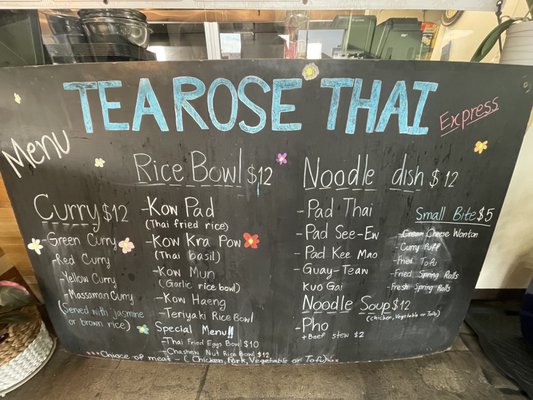 TEA ROSE THAI
Express
Menu
Curry $12
- Green Curry
- Red Curry
- Yellow Curry
- Massaman Curry
(Served with jasmine
or brown rice)
Rice Bowl $12
- Kow Pad
(Thai fried rice)
- Kow Kra Pow
(Thai basil)
- Kow Mun
(Garlic rice bowl)
- Kow Haeng
- Teriyaki Rice Bowl
Special Menu!!
- Thai Fried Eggs Bowl $10
- Cashew Nut Rice Bowl $12
Noodle dish $12
- Pad Thai
- Pad See-Ew
- Pad Kee Mao
- Guay-Tean
Kuo Gai
Noodle Soup $12
(chicken, Vegetable or Tofu)
- Pho
+ Beef stew $2
Small Bite $5
- Cream Cheese Wonton
- Curry Puff
- Fried Tofu
- Fried Spring Rolls
- Fresh Spring Rolls
*** Choice of meat - (Chicken, Pork, Vegetable or Tofu) ***